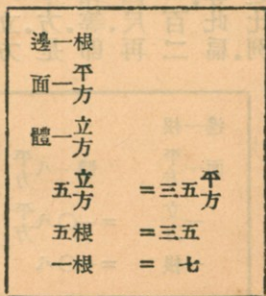 邊一根
面一平方
體一立方
五立方=三五平方
五根=三五
一根=七